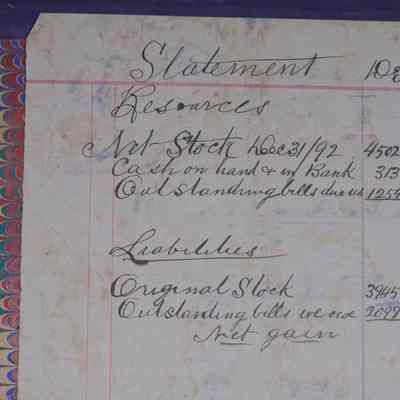 Statement
Resources
Net Stock Dec 31/92 4502
Cash on hand & in Bank 313
Outstanding bills due us 1254
Liabilities
Original Stock 3945
Outstanding bills we owe 2098
Net gain